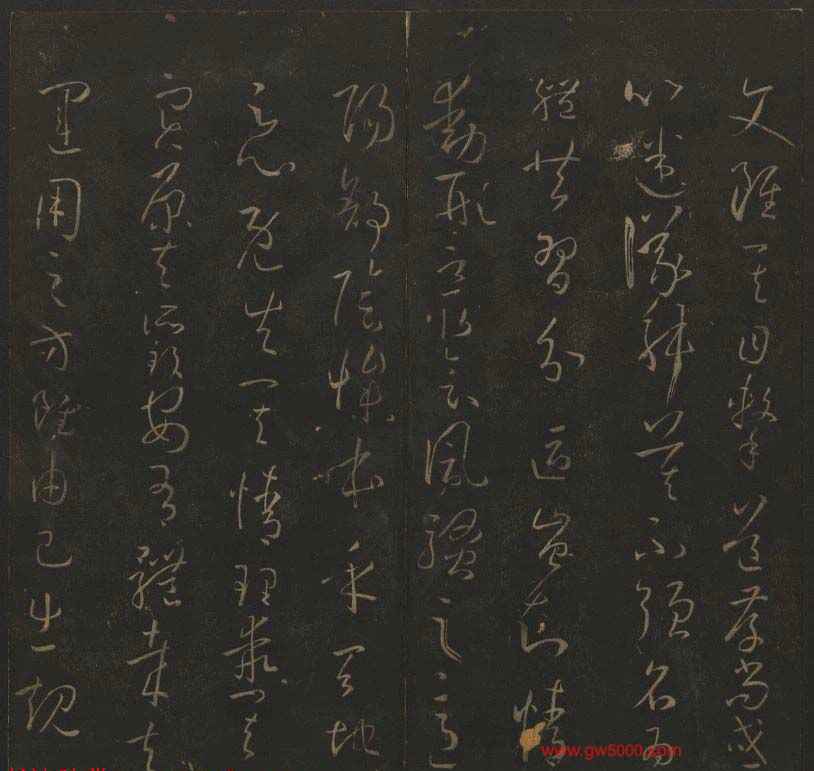 文雖其目擊道存尚或
心迷議舛莫不強名為
體共習分區豈知情
動形言取會風騷之意
陽舒陰慘本乎天地
之心既失其情理乖其
實原夫所致安有體哉夫
運用之方雖由己出規
www.gw5000.com